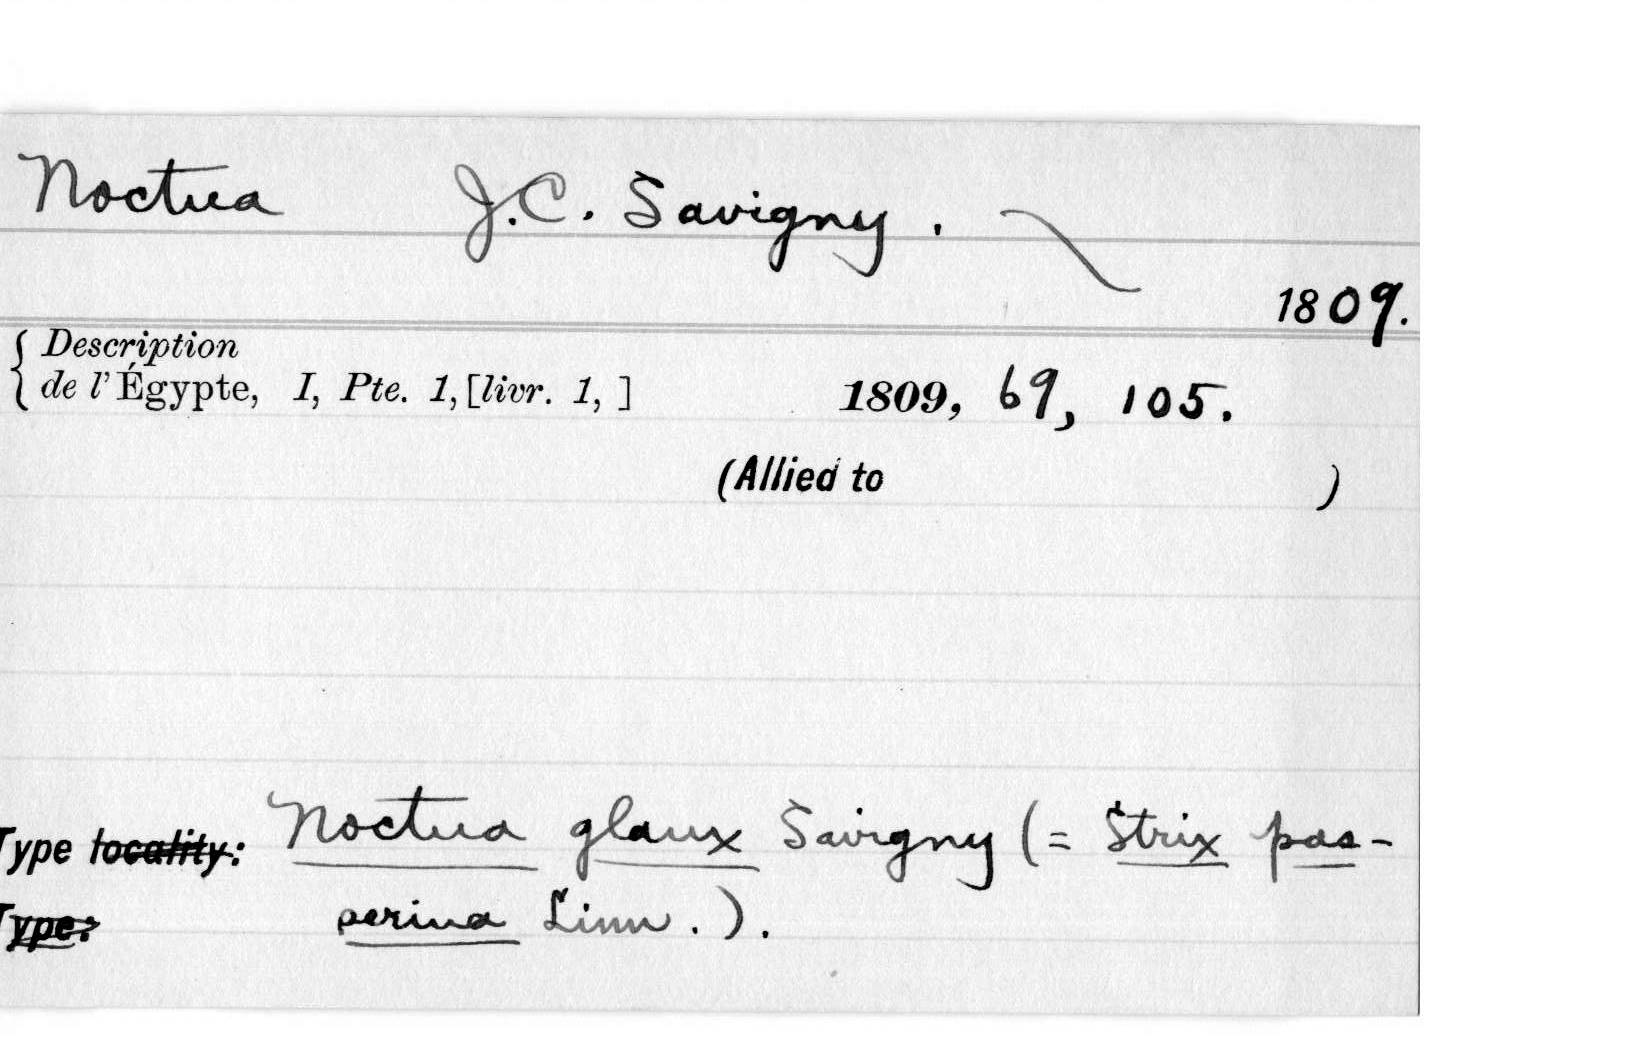 Noctua J.C. Savigny.
1809.
{ Description
de l'Égypte, I, Pte. 1, [livr. 1, ] 1809, 69, 105.
(Allied to )
Type locality: Noctua glaux Savigny (= Strix pas-
Type: serina Linn.).